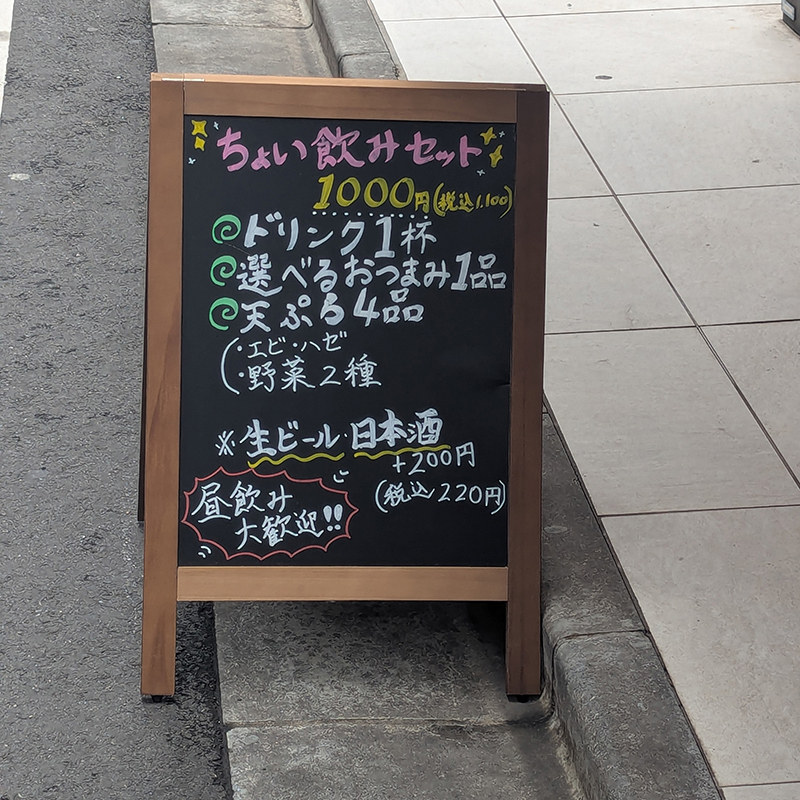 ちょい飲みセット
1000円(税込1.100)
ドリンク1杯
選べるおつまみ1品
天ぷら4品
(・エビ・ハゼ
・野菜2種
※生ビール・日本酒
+200円
(税込220円)
昼飲み
大歓迎!!